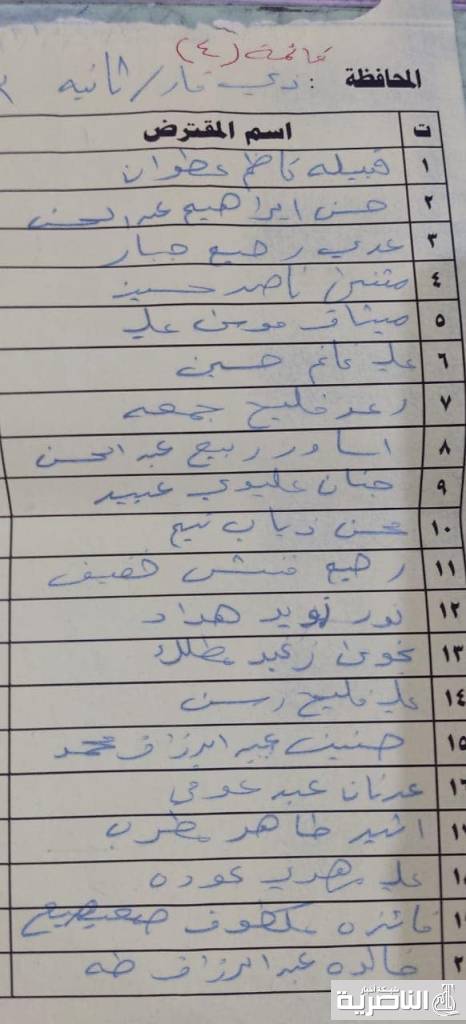 قائمة (٤)
المحافظة : ذي قار / ثانيه
ت اسم المقترض
١ قبيله كاظم عطوان
٢ حسن ابراهيم عبد الحسن
٣ عدي رحيم جبار
٤ مثنى ناصر حسين
٥ ميثاق موسى علي
٦ علي غانم حسين
٧ رعد فليح جمعه
٨ اساور ربيع عبد الحسن
٩ جنان عليوي عبيد
١٠ محسن ذياب
١١ رحيم خفيف
١٢ نور هداد
١٣ نجوى زغير مطلك
١٤ علي فليح رسن
١٥ حنين عبد الرزاق محمد
١٦ عدنان عبد عوفي
١٧ اثير طاهر
١٨ علي مهدي عوده
١٩ فائزه مكطوف
٢ خالده عبد الرزاق طه
شبكة أخبار الناصرية